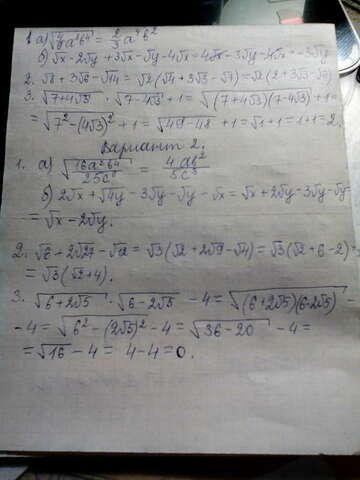 1. а) √(4/9 a⁸b⁴) = 2/3 a⁴b²
б) √x - 2√y + 3√x - √y - 4√x = 4√x - 3√y - 4√x = -3√y
2. √8 + 3√6 - √14 = √2(√4 + 3√3 - √7) = √2(2 + 3√3 - √7)
3. √(7+4√3) · √(7-4√3) + 1 = √((7+4√3)(7-4√3)) + 1 =
= √(7² - (4√3)²) + 1 = √(49-48) + 1 = √1 + 1 = 1 + 1 = 2.
Вариант 2.
1. а) √(16a²b⁴/25c⁶) = 4ab²/5c³
б) 2√x + √4y - 3√y - √y - √x = √x + 2√y - 3√y - √y
= √x - 2√y.
2. √6 + 2√27 - √12 = √3(√2 + 2√9 - √4) = √3(√2 + 6 - 2) =
= √3(√2 + 4).
3. √(6+2√5) · √(6-2√5) - 4 = √((6+2√5)(6-2√5)) -
- 4 = √(6² - (2√5)²) - 4 = √(36-20) - 4 =
= √16 - 4 = 4 - 4 = 0.